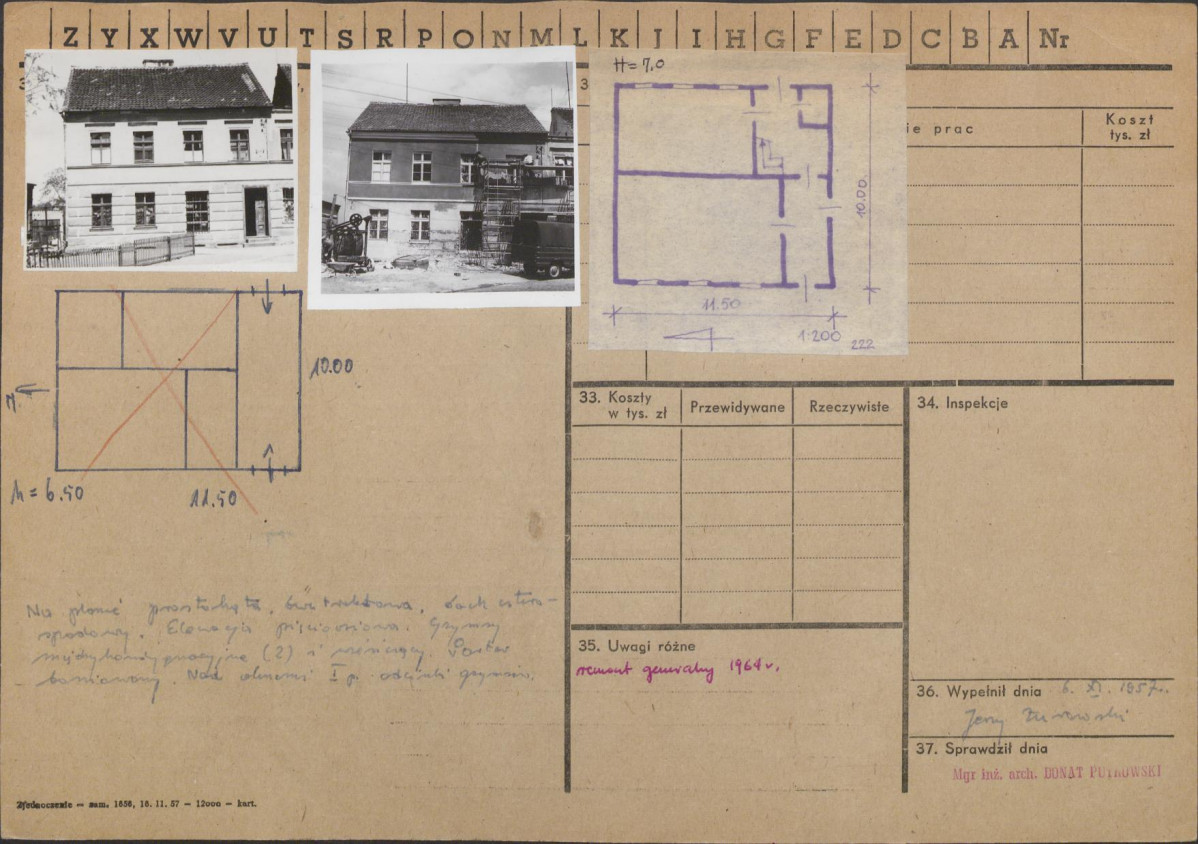 Z Y X W V U T S R P O N M L K J I H G F E D C B A Nr
3
3
H = 7,0
ie prac
Koszt
tys. zł
10.00.
11.50
1:200
222
10.00
h = 6.50
11.50
Na planie prostokąta, dwutraktowa, dach cztero-
spadowy. Elewacja pięcioosiowa. Gzymsy
międzykondygnacyjne (2) i wieńczący.
boniowany. Nad oknami I p. odcinki gzymsu.
33. Koszty
w tys. zł
Przewidywane
Rzeczywiste
34. Inspekcje
35. Uwagi różne
remont generalny 1964 r.
36. Wypełnił dnia 6. XI. 1957r.
Jerzy
37. Sprawdził dnia
Mgr inż. arch. DONAT PUTKOWSKI
Zjednoczenie — zam. 1656, 16. 11. 57 — 12000 — kart.